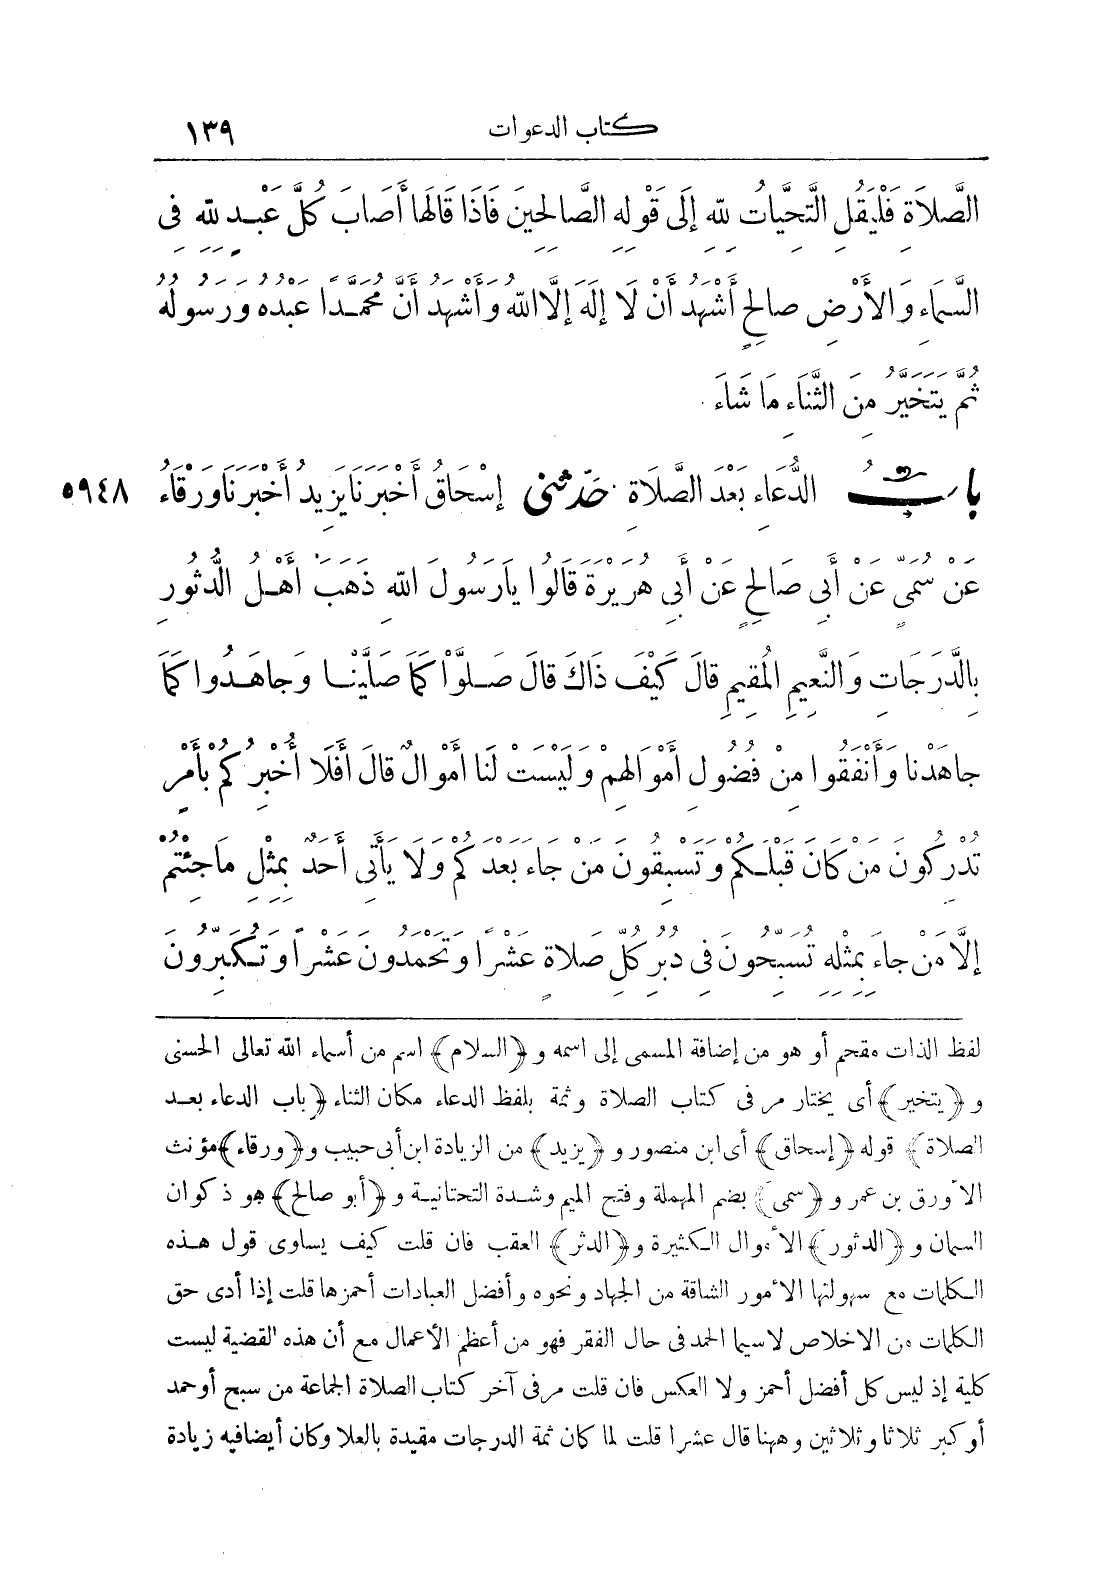 كتاب الدعوات ١٣٩
الصَّلَاةِ فَلْيَقُلِ التَّحِيَّاتُ لِلَّهِ إِلَى قَوْلِهِ الصَّالِحِينَ فَاذَا قَالَهَا أَصَابَ كُلَّ عَبْدٍ لِلَّهِ فِى
السَّمَاءِ وَالأَرْضِ صالِحٍ أَشْهَدُ أَنْ لَا إِلَهَ إِلَّا اللهُ وَأَشْهَدُ أَنَّ مُحَمَّدًا عَبْدُهُ وَرَسُولُهُ
ثُمَّ يَتَخَيَّرُ مِنَ الثَّنَاءِ مَا شَاءَ .
بابُ الدُّعَاءِ بَعْدَ الصَّلَاةِ . حَدَّثَنِى إِسْحَاقُ أَخْبَرَنَا يَزِيدُ أَخْبَرَنَا وَرْقَاءُ ٥٩٤٨
عَنْ سُمَىٍّ عَنْ أَبِى صَالِحٍ عَنْ أَبِى هُرَيْرَةَ قَالُوا يَارَسُولَ اللهِ ذَهَبَ أَهْلُ الدُّثُورِ
بِالدَّرَجَاتِ وَالنَّعِيمِ المُقِيمِ قالَ كَيْفَ ذَاكَ قالَ صَلَّوْا كَمَا صَلَّيْنَا وَجاهَدُوا كَمَا
جاهَدْنا وَأَنْفَقُوا مِنْ فُضُولِ أَمْوَالِهِمْ وَلَيْسَتْ لَنَا أَمْوالٌ قالَ أَفَلَا أُخْبِرُكُمْ بِأَمْرٍ
تُدْرِكُونَ مَنْ كَانَ قَبْلَكُمْ وَتَسْبِقُونَ مَنْ جَاءَ بَعْدَكُمْ وَلَا يَأْتِى أَحَدٌ بِمِثْلِ مَاجِئْتُمْ
إِلَّا مَنْ جاءَ بِمِثْلِهِ تُسَبِّحُونَ فِى دُبُرِ كُلِّ صَلاةٍ عَشْرًا وَتَحْمَدُونَ عَشْرًا وَتُكَبِّرُونَ
لفظ الذات مقحم أو هو من إضافة المسمى إلى اسمه و ﴿السلام﴾ اسم من أسماء الله تعالى الحسنى
و ﴿يتخير﴾ أى يختار مر فى كتاب الصلاة وثمة بلفظ الدعاء مكان الثناء ﴿باب الدعاء بعد
الصلاة﴾ قوله ﴿إسحاق﴾ أى ابن منصور و ﴿يزيد﴾ من الزيادة ابن أبى حبيب و﴿ورقاء﴾ مؤنث
الأورق بن عمر و ﴿سمى﴾ بضم المهملة وفتح الميم وشدة التحتانية و ﴿أبو صالح﴾ هو ذكوان
السمان و ﴿الدثور﴾ الأموال الكثيرة و﴿الدثر﴾ العقب فان قلت كيف يساوى قول هذه
الكلمات مع سهولتها الأمور الشاقة من الجهاد ونحوه وأفضل العبادات أحمزها قلت إذا أدى حق
الكلمات من الاخلاص لاسيما الحمد فى حال الفقر فهو من أعظم الأعمال مع أن هذه القضية ليست
كلية إذ ليس كل أفضل أحمز ولا العكس فان قلت مر فى آخر كتاب الصلاة الجماعة من سبح أوحمد
أو كبر ثلاثا وثلاثين وههنا قال عشرا قلت لما كان ثمة الدرجات مقيدة بالعلا وكان أيضافيه زيادة